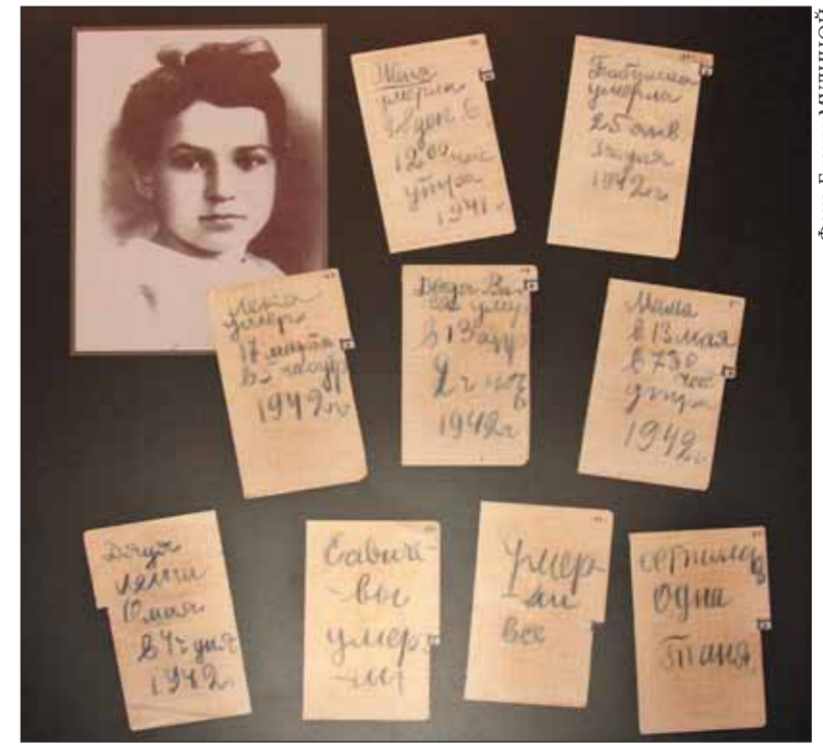 Женя
умерла
28 дек в
12.00 час
утра
1941 г
Бабушка
умерла
25 янв.
3 ч. дня
1942 г.
Лека
умер
17 марта
в 5 час утр
1942 г.
Дядя Ва
ся умер
в 13 апр
2 ч ноч
1942 г
Мама
в 13 мая
в 7.30
час
утра
1942 г
Дядя
Лёша
10 мая
в 4 ч дня
1942 г
Савиче
-вы
умер
-ли
Умер
ли
все
осталась
одна
Таня
МУДИЦОЙ